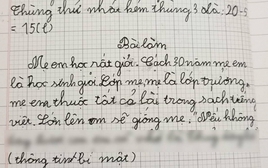 Thùng thứ nhất kém thùng 3 là: 20-5
= 15(l)
Bài làm
Mẹ em học rất giỏi. Cách 30 năm mẹ em
là học sinh giỏi. Lớp mẹ, mẹ là lớp trưởng,
mẹ em thuộc tất cả bài trong sách tiếng
việt. Lớn lên em sẽ giống mẹ. Nếu không
(thông tin bí mật)